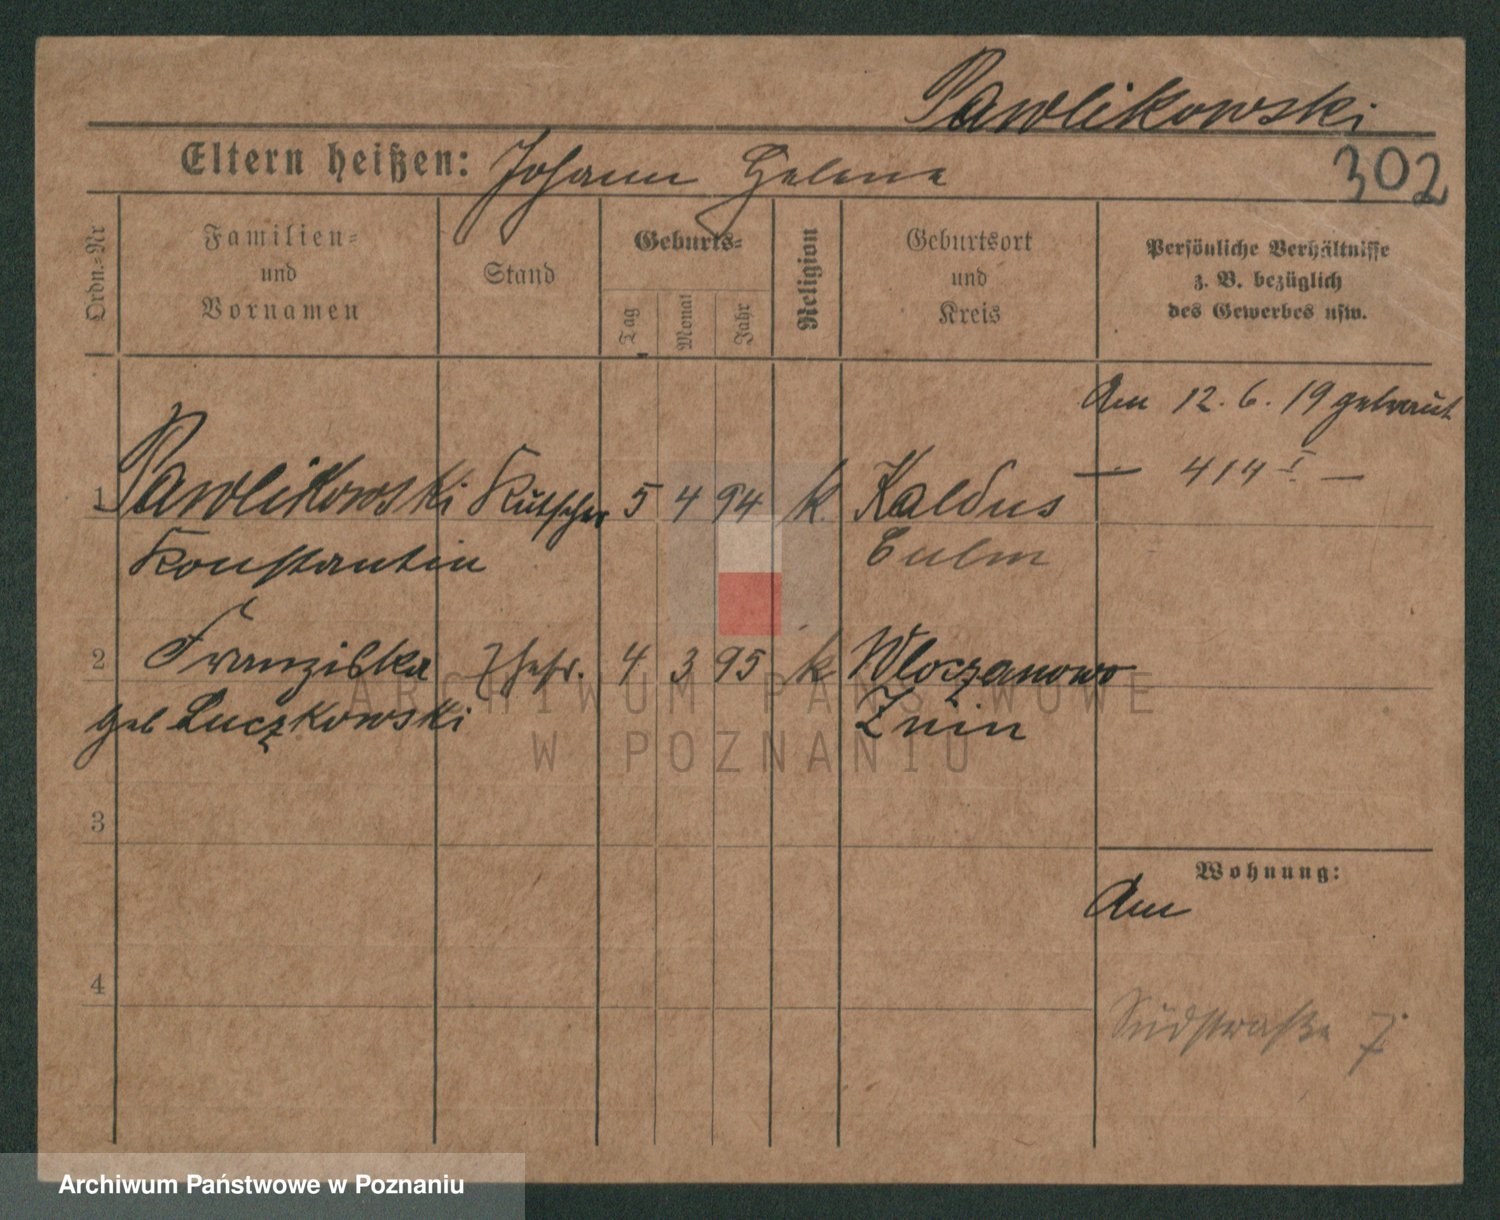 Pawlikowski
Eltern heißen: Johann Helene
302
Ordn.=Nr
Familien=
und
Vornamen
Stand
Geburts=
Tag
Monat
Jahr
Religion
Geburtsort
und
Kreis
Persönliche Verhältnisse
z. B. bezüglich
des Gewerbes usw.
Am 12. 6. 19 getraut
— 414 I —
1 Pawlikowski Kutscher 5 4 94 k. Kaldus
Konstantin Culm
2 Franziska 4 3 95 k Wloczanowo
geb Luczkowski Znin
3
Wohnung:
Am
4
Südstraße 7
ARCHIWUM PAŃSTWOWE
W POZNANIU
Archiwum Państwowe w Poznaniu